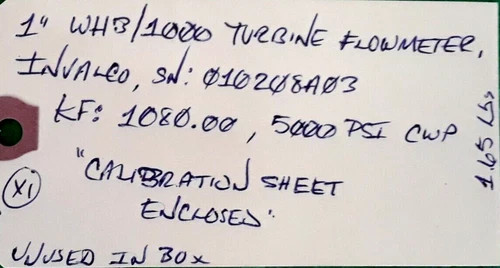 1" WHB/1000 TURBINE FLOWMETER,
INVALCO, SN: 010208A03
KF: 1080.00, 5000 PSI CWP
"CALIBRATION SHEET
ENCLOSED"
X1
UNUSED IN BOX
1.65 LBS